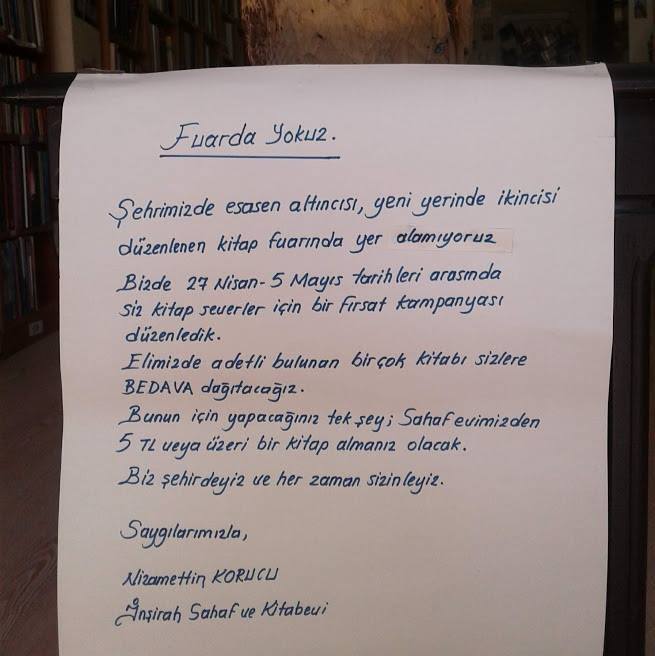 Fuarda Yokuz.
Şehrimizde esasen altıncısı, yeni yerinde ikincisi
düzenlenen kitap fuarında yer alamıyoruz
Bizde 27 Nisan-5 Mayıs tarihleri arasında
Siz kitap severler için bir fırsat kampanyası
düzenledik.
Elimizde adetli bulunan birçok kitabı sizlere
BEDAVA dağıtacağız.
Bunun için yapacağınız tek şey; Sahaf evimizden
5 TL veya üzeri bir kitap almanız olacak.
Biz şehirdeyiz ve her zaman sizinleyiz.
Saygılarımızla,
Nizamettin KORUCU
İnşirah Sahaf ve Kitabevi